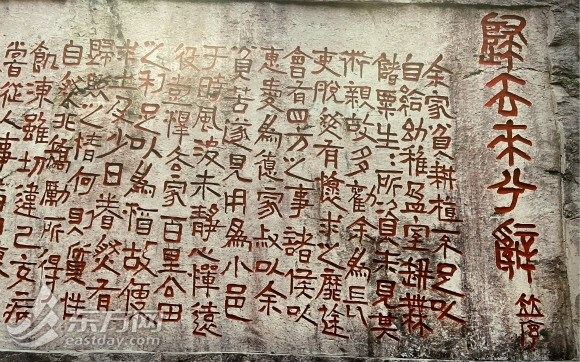 歸去来兮辭
並序
余家貧耕植不足以
自給幼稚盈室缾無
儲粟生:所資未見其
術親故多勸余為長
吏脫然有懷求之靡途
會有四方之事諸侯以
惠愛為德家叔以余
貧苦遂見用為小邑
于時風波未靜心憚遠
役彭澤去家百里公田
之利足以為酒故便
求之及少日眷然有
歸歟之情何則質性
自然非矯勵所得
飢凍雖切違己交病
嘗從人事
东方网
eastday